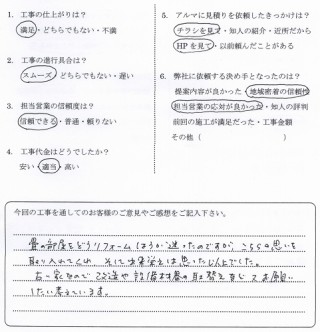 1. 工事の仕上がりは？
満足・どちらでもない・不満
2. 工事の進行具合は？
スムーズ・どちらでもない・遅い
3. 担当営業の信頼度は？
信頼できる・普通・頼りない
4. 工事代金はどうでしたか？
安い・適当・高い
5. アルマに見積りを依頼したきっかけは？
チラシを見て・知人の紹介・近所だから
HPを見て・以前頼んだことがある
6. 弊社に依頼する決め手となったのは？
提案内容が良かった・地域密着の信頼性
担当営業の応対が良かった・知人の評判
前回の施工が満足だった・工事金額
その他（　　　）
今回の工事を通してのお客様のご意見やご感想をご記入下さい。
畳の部屋をどうリフォームしようか迷ったのですが、こちらの思いを
取り入れてくれ そして出来栄えは思った以上でした。
古い家なので 改造や設備機器の取替えなど 又お願い
したいと考えています。